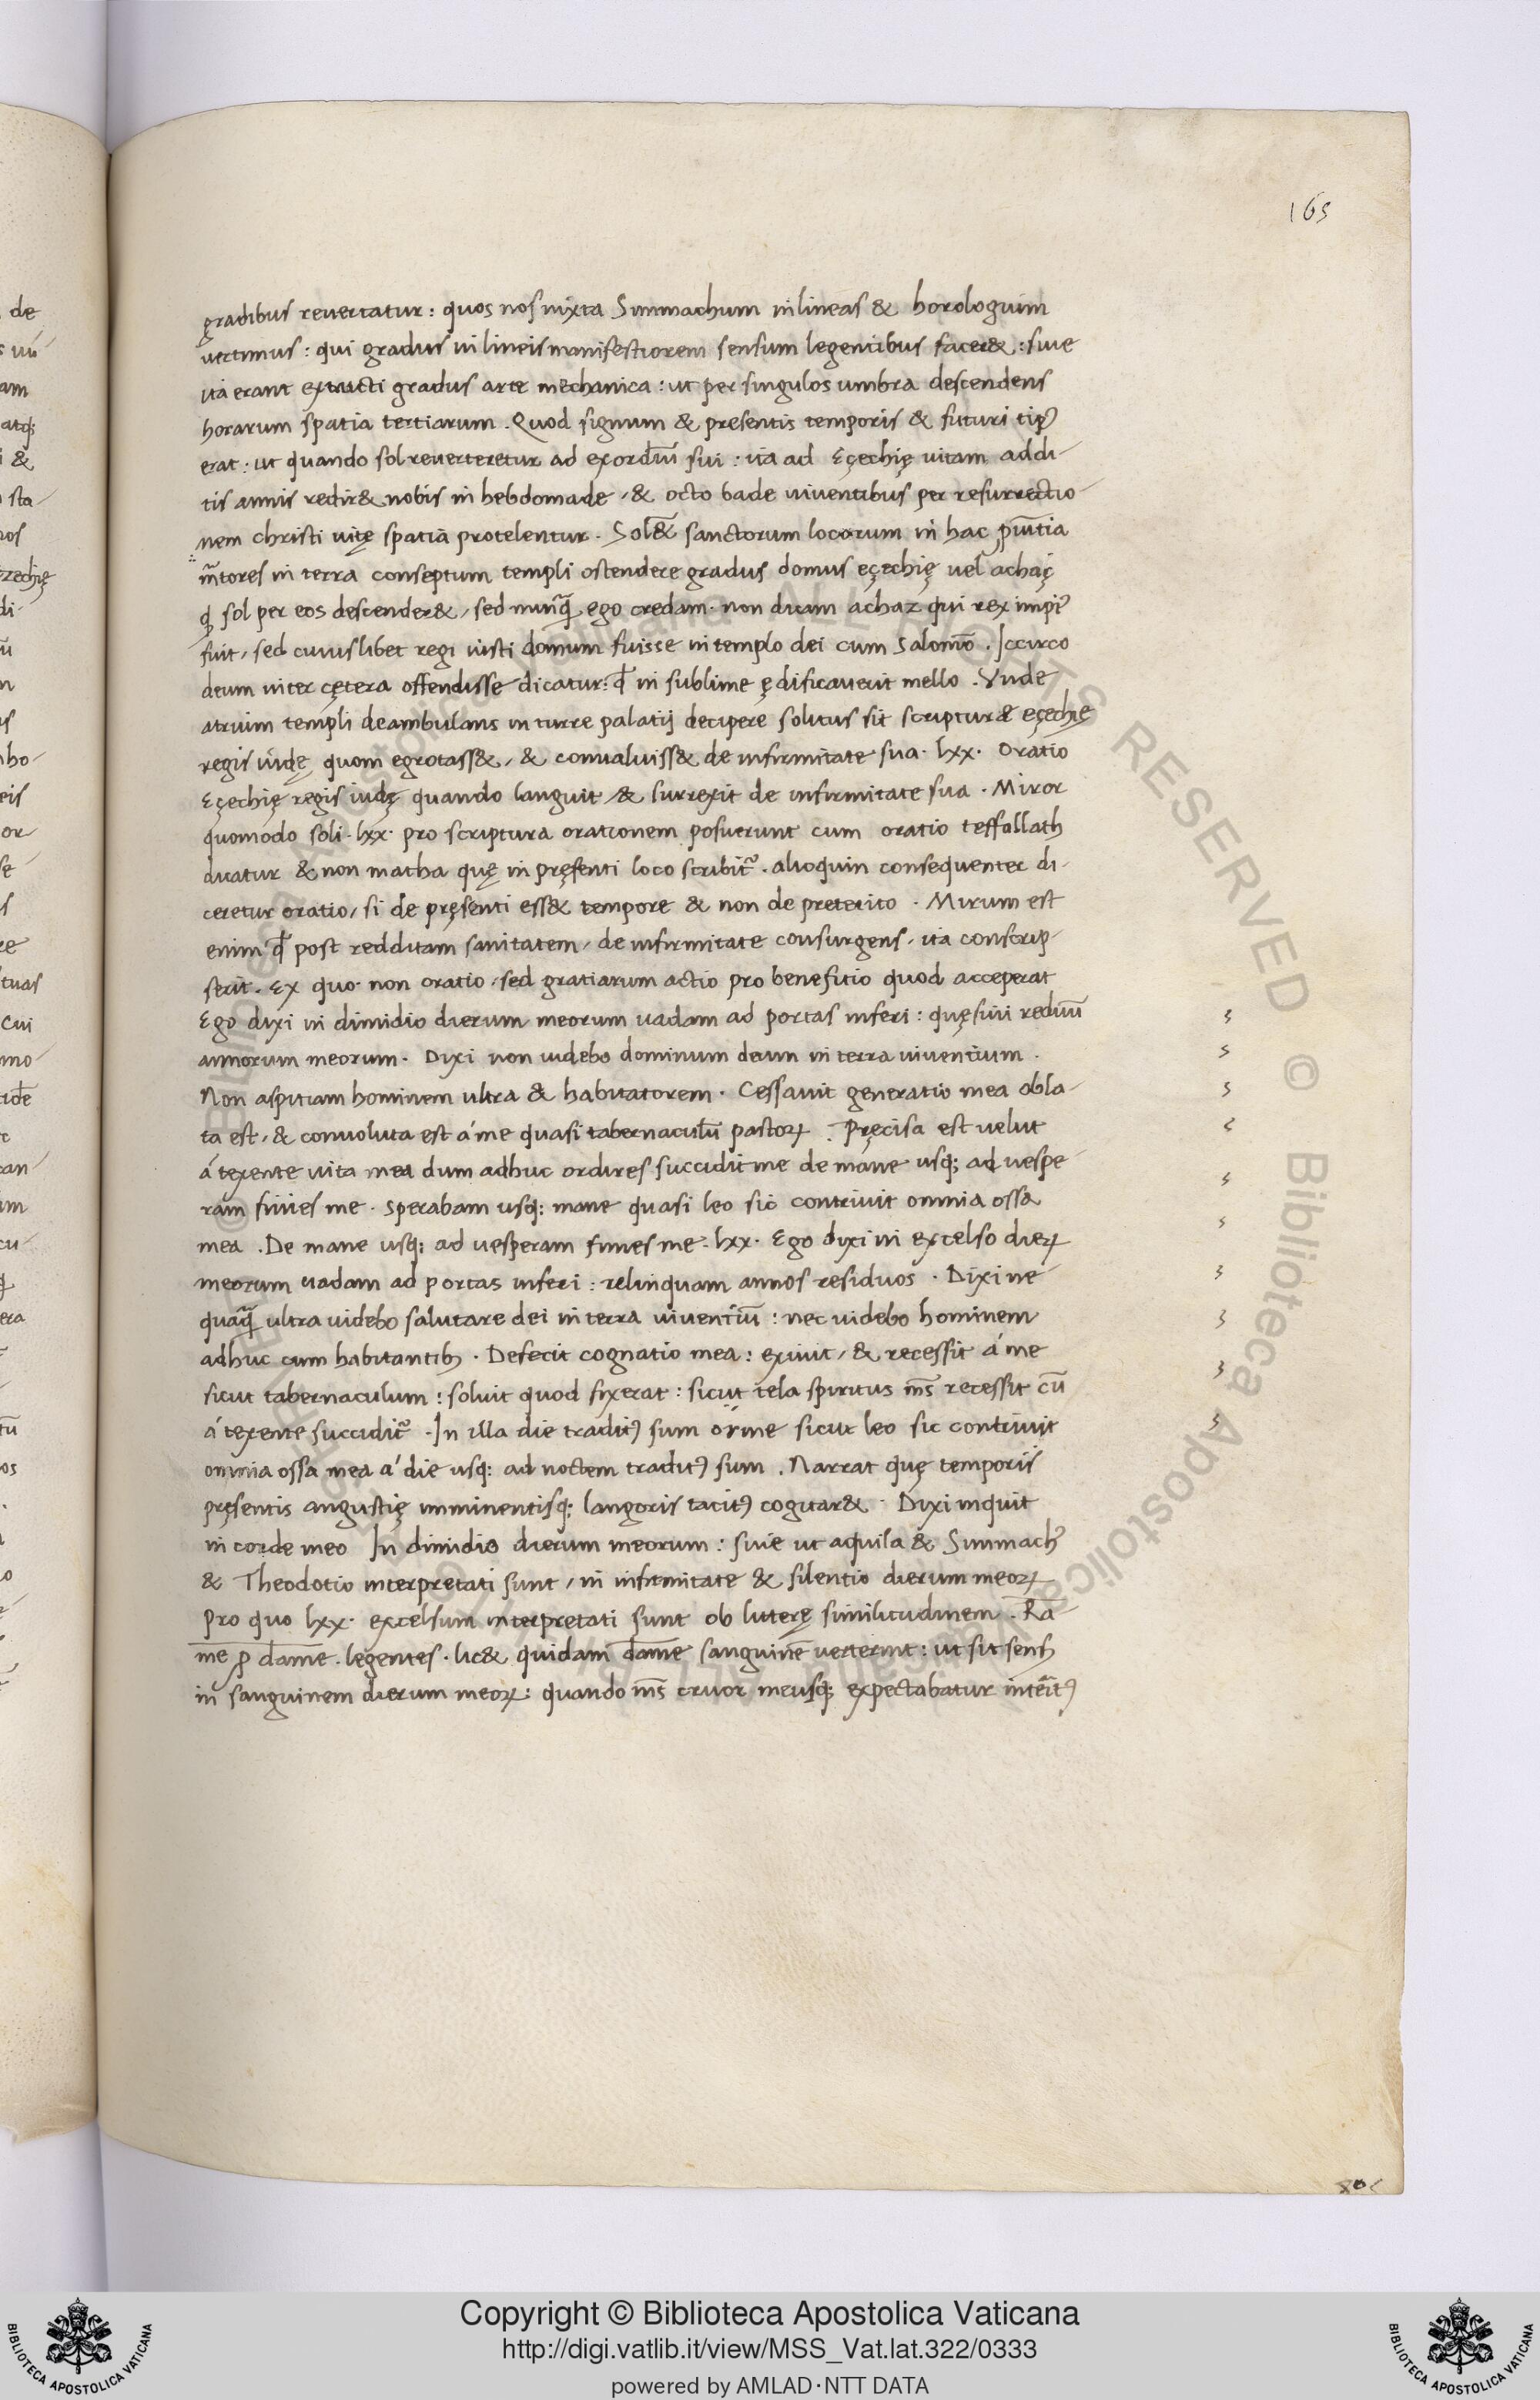 165
gradibus reuertatur : quos nos iuxta Simmachum in lineas & horologium
uertimus : qui gradus in lineis manifestiorem sensum legentibus facer& : siue
ita erant extructi gradus arte mechanica : ut per singulos umbra descendens
horarum spatia tertiarum . Quod signum & presentis temporis & futuri tip⁹
erat : ut quando sol reuerteretur ad exordiū sui : ita ad Eçechię uitam addi-
tis annis redir& nobis in hebdomade , & octo bade uiuentibus per resurrectio-
nem christi uitę spatia protelentur . Sol& sanctorum locorum in hac ꝓuītia
in terra conseptum templi ostendere gradus domus eçechię uel achaç
ꝙ sol per eos descender& , sed nunꝗ̄ ego credam . non dicam achaz qui rex impi⁹
fuit , sed cuiuslibet regi iusti domum fuisse in templo dei cum Salomō . Iccirco
deum inter cętera offendisse dicatur : ꝙ in sublime ędificauerit mello . Vnde
atrium templi deambulans in turre palatij decipere solitus sit scriptura eçechię
regis iudę quom egrotass& , & conualuiss& de infirmitate sua . lxx . Oratio
Eçechię regis iudę quando languit & surrexit de infirmitate sua . Miror
quomodo soli . lxx . pro scriptura orationem posuerunt cum oratio teffallath
dicatur & non matha quę in pręsenti loco scribit̃ . alioquin consequenter di-
ceretur oratio , si de pręsenti ess& tempore & non de preterito . Mirum est
enim ꝙ post redditam sanitatem , de infirmitate consurgens , ita conscrip-
serit . Ex quo . non oratio , sed gratiarum actio pro benefitio quod acceperat
Ego dixi in dimidio dierum meorum uadam ad portas inferi : quęsiui
annorum meorum . Dixi non uidebo dominum deum in terra uiuentium .
Non aspitiam hominem ultra & habitatorem . Cessauit generatio mea obla-
ta est , & conuoluta est á me quasi tabernaculū pastoꝝ . Pręcisa est uelut
á texente uita mea dum adhuc ordires succidit me de mane usq; ad uespe-
ram finies me . sperabam usq; mane quasi leo sic contriuit omnia ossa
mea . De mane usq; ad uesperam finies me . lxx . Ego dixi in excelso dieꝝ
meorum uadam ad portas inferi : relinquam annos residuos . Dixi ne
quaꝗ̄ ultra uidebo salutare dei in terra uiuentiū : nec uidebo hominem
adhuc cum habitantibꝫ . Defecit cognatio mea : exiuit , & recessit á me
sicut tabernaculum : soluit quod fixerat : sicut tela spiritus m̄s recessit cū
á texente succidit̃ . In illa die tradit⁹ sum sicut leo sic contriuit
omnia ossa mea á die usq; ad noctem tradit⁹ sum . Narrat quę temporis
pręsentis angustię imminentisq; langoris tacit⁹ cogitar& . Dixi inquit
in corde meo In dimidio dierum meorum : siue ut aquila & Simmach⁹
& Theodotio interpretati sunt , in infirmitate & silentio dierum meoꝝ
Pro quo lxx . excelsum interpretati sunt ob luterę similitudinem . Ra-
me ꝓ dame . legentes . lic& quidam dame sanguinē uerterint : ut sit sensꝫ
in sanguinem dierum meoꝝ : quando m̄s cruor meusq; expectabatur interit⁹
Copyright © Biblioteca Apostolica Vaticana
http://digi.vatlib.it/view/MSS_Vat.lat.322/0333
powered by AMLAD·NTT DATA